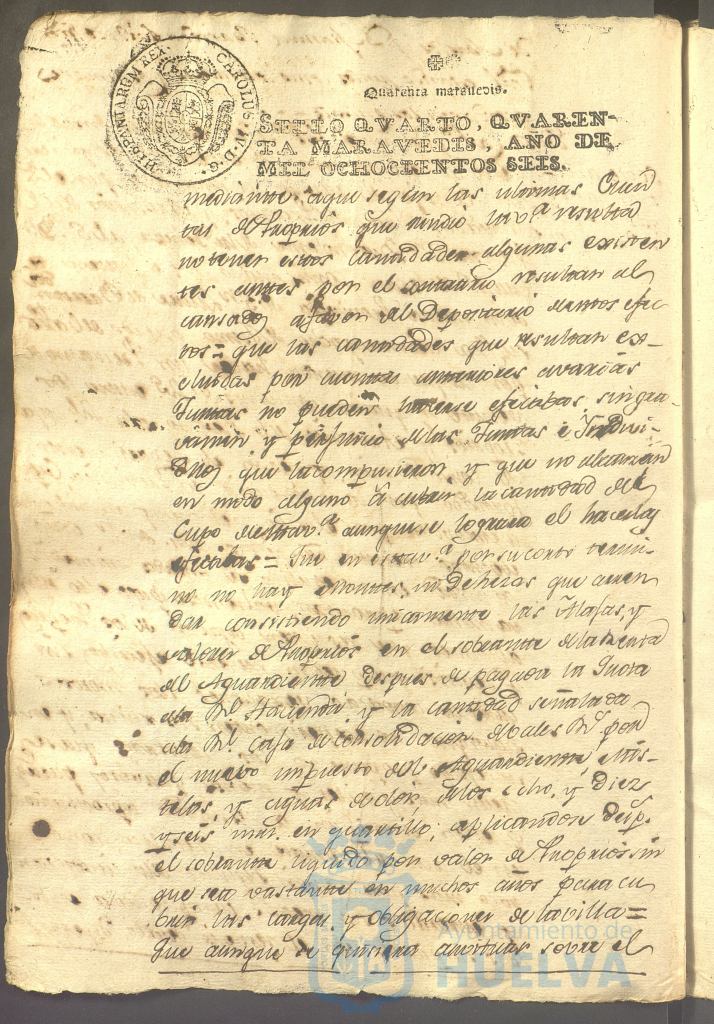 HISPANIARUM REX. CAROLUS IV D. G.
Quarenta maravedis.
SELLO QVARTO, QVAREN-
TA MARAVEDIS, AÑO DE
MIL OCHOCIENTOS SEIS.
mediante aque segun las ultimas Cuen
tas de Proprios que rindio la v.ª resulta
no tener estos Cantidades algunas existen
tes antes por el contrario resultan al
canzados a favor del Depositario de estos efec
tos = que las cantidades que resultan ex-
cluidas por cuentas anteriores avarias
Juntas no pueden hacerse efectibas singra-
vamen y perjuicio delas Juntas e Indivi-
duos que la compusieron y que no alcanzan
en modo alguno a cubrir la cantidad del
Cupo de esta v.ª aunque se lograra el hacerlas
efectibas = Que en esta v.ª por su corto termi-
no no hay Montes, ni Dehesas que arren
dar consistiendo unicamente las Alajas, y
valores de Proprios en el sobrante de la renta
del Aguardiente despues de pagada la Quota
ala Rl. Hacienda y la cantidad señalada
ala Rl. Caja de consolidacion de vales Rs. por
el nuevo impuesto del Aguardiente, Mis-
telas, y aguas de olor, de los ocho, y Diez
y seis mrs. en quartillo; aplicandose desp.s
el sobrante liquido por valor de Proprios sin
que sea vastante en muchos años para cu
brir las cargas y obligaciones de la villa =
Que aunque se quisiera sobre el
Ayuntamiento de
HUELVA